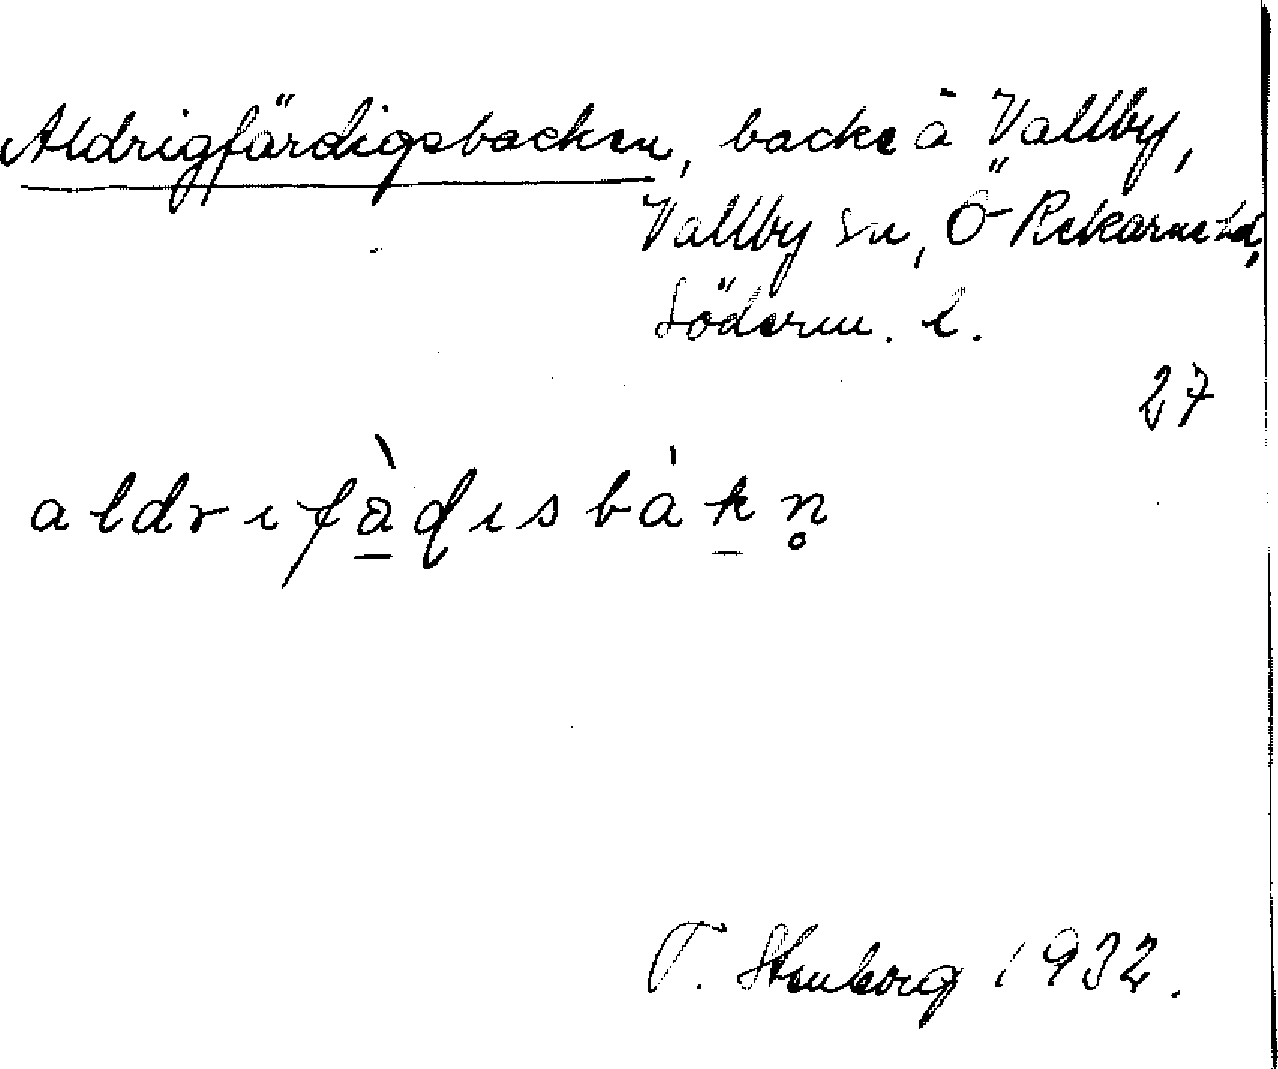 Aldrigfärdigsbacken, backe å Vallby,
Vallby sn, Ö Rekarne hd,
Söderm. l.
27
aldrifàdisbákn̥
T. Stenborg 1932.